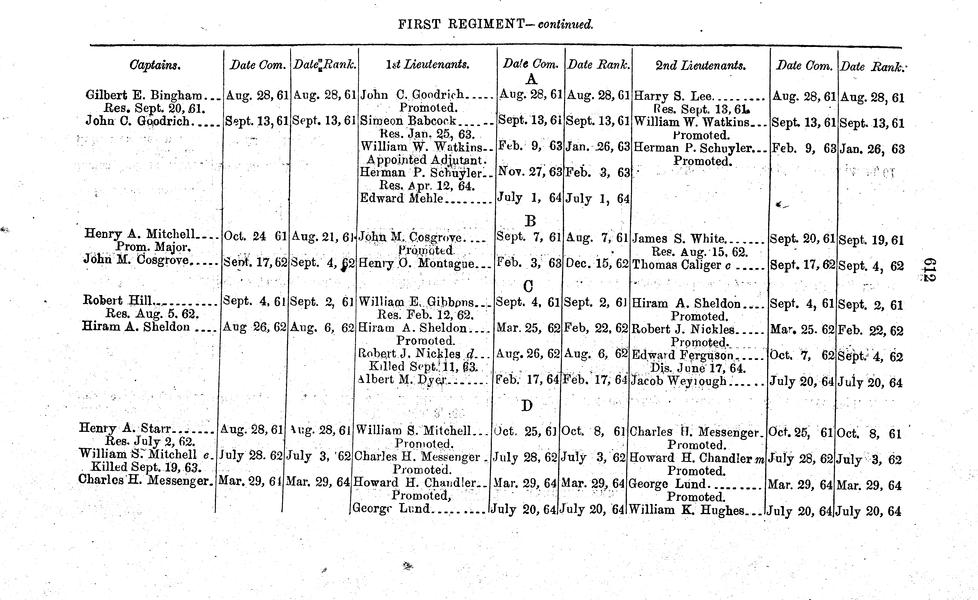 FIRST REGIMENT—continued.
Captains. Date Com. Date Rank. 1st Lieutenants. Date Com. Date Rank. 2nd Lieutenants. Date Com. Date Rank.
A
Gilbert E. Bingham... Aug. 28, 61 Aug. 28, 61 John C. Goodrich..... Aug. 28, 61 Aug. 28, 61 Harry S. Lee........ Aug. 28, 61 Aug. 28, 61
Res. Sept. 20, 61. Promoted. Res. Sept. 13, 61.
John C. Goodrich..... Sept. 13, 61 Sept. 13, 61 Simeon Babcock...... Sept. 13, 61 Sept. 13, 61 William W. Watkins... Sept. 13, 61 Sept. 13, 61
Res. Jan. 25, 63. Promoted.
William W. Watkins.. Feb. 9, 63 Jan. 26, 63 Herman P. Schuyler... Feb. 9, 63 Jan. 26, 63
Appointed Adjutant. Promoted.
Herman P. Schuyler.. Nov. 27, 63 Feb. 3, 63
Res. Apr. 12, 64.
Edward Mehle........ July 1, 64 July 1, 64
B
Henry A. Mitchell.... Oct. 24 61 Aug. 21, 61 John M. Cosgrove.... Sept. 7, 61 Aug. 7, 61 James S. White....... Sept. 20, 61 Sept. 19, 61
Prom. Major. Promoted. Res. Aug. 15, 62.
John M. Cosgrove..... Sept. 17, 62 Sept. 4, 62 Henry O. Montague... Feb. 3, 63 Dec. 15, 62 Thomas Caliger c ..... Sept. 17, 62 Sept. 4, 62
C
Robert Hill........... Sept. 4, 61 Sept. 2, 61 William E. Gibbons... Sept. 4, 61 Sept. 2, 61 Hiram A. Sheldon.... Sept. 4, 61 Sept. 2, 61
Res. Aug. 5. 62. Res. Feb. 12, 62. Promoted.
Hiram A. Sheldon .... Aug 26, 62 Aug. 6, 62 Hiram A. Sheldon.... Mar. 25, 62 Feb, 22, 62 Robert J. Nickles..... Mar. 25. 62 Feb. 22, 62
Promoted. Promoted.
Robert J. Nickles d... Aug. 26, 62 Aug. 6, 62 Edward Ferguson..... Oct. 7, 62 Sept. 4, 62
Killed Sept. 11, 63. Dis. June 17, 64.
Albert M. Dyer....... Feb. 17, 64 Feb. 17, 64 Jacob Weyrough...... July 20, 64 July 20, 64
D
Henry A. Starr....... Aug. 28, 61 Aug. 28, 61 William S. Mitchell... Oct. 25, 61 Oct. 8, 61 Charles H. Messenger. Oct. 25, 61 Oct. 8, 61
Res. July 2, 62. Promoted. Promoted.
William S. Mitchell e. July 28. 62 July 3, 62 Charles H. Messenger . July 28, 62 July 3, 62 Howard H. Chandler m July 28, 62 July 3, 62
Killed Sept. 19, 63. Promoted. Promoted.
Charles H. Messenger. Mar. 29, 64 Mar. 29, 64 Howard H. Chandler.. Mar. 29, 64 Mar. 29, 64 George Lund......... Mar. 29, 64 Mar. 29, 64
Promoted, Promoted.
George Lund......... July 20, 64 July 20, 64 William K. Hughes... July 20, 64 July 20, 64
612